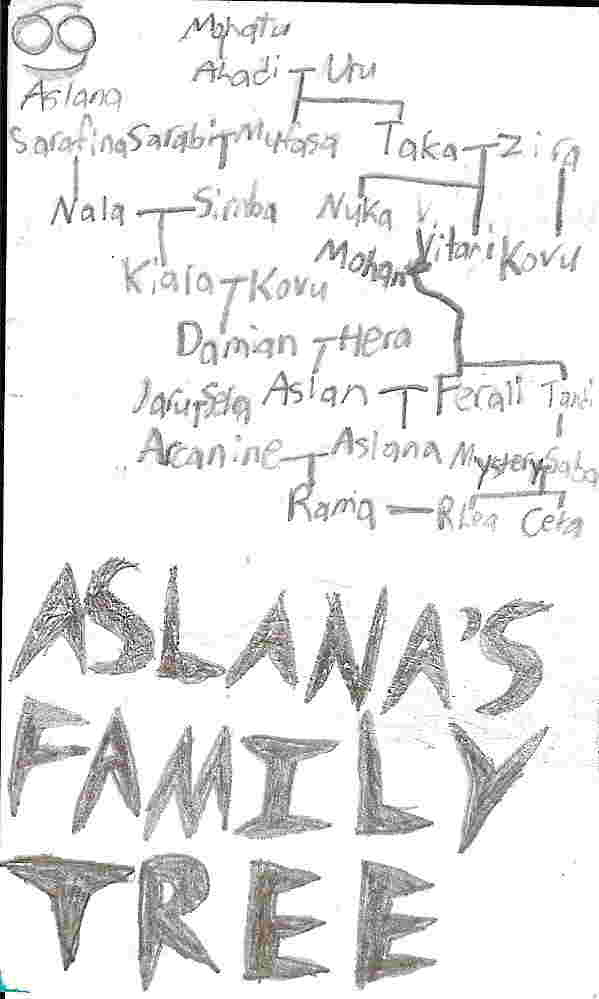 Mohatu
Ahadi Uru
Aslana
Sarafina Sarabi Mufasa Taka Zira
Nala Simba Nuka V.
Mohan Vitani Kovu
Kiala Kovu
Damian Hera
Aslan Ferali
Arcanine Aslana Mystery Saba
Rama Ceta
ASLANA'S
FAMILY
TREE